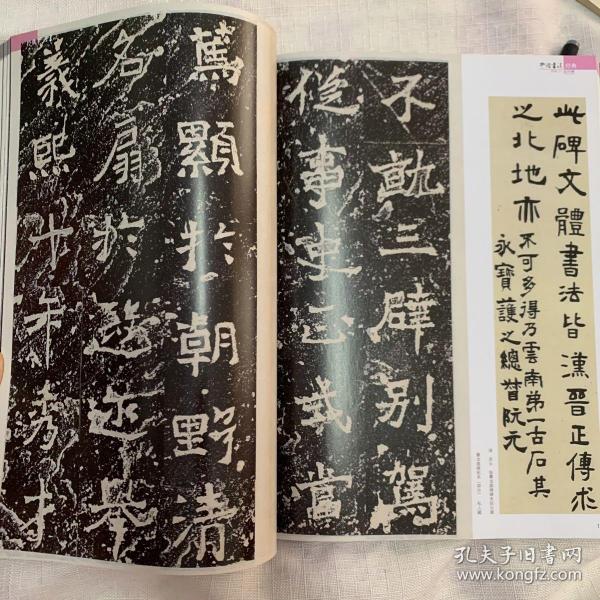 此碑文體書法皆漢晉正傳求
之北地亦
不可多得乃雲南第一古石其
永寶護之總督阮元
不就三辟别駕
從事史正式當
篤顯於朝野清
名扇於遐邇舉
義熙十年秀才
孔夫子旧书网
www.kongfz.com